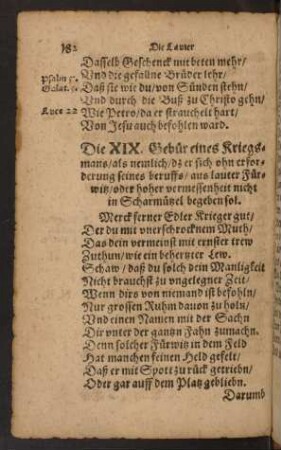 182 Die Lauter
Dasselb Geschenck mit beten mehr/
Psalm 5. Vnd die gefallne Brüder lehr/
Galat. 5. Daß sie wie du/ von Sünden stehn/
Vnd durch die Buß zu Christo gehn/
Luce 22 Wie Petro/ da er strauchelt hart/
Von Jesu auch befohlen ward.
Die XIX. Gebür eines Kriegs-
mans/ als nemlich/ dz er sich ohn erfor-
derung seines beruffs/ aus lauter Für-
witz/ oder hoher vermessenheit nicht
in Scharmützel begeben sol.
Merck ferner Edler Krieger gut/
Der du mit vnerschrocknem Muth/
Das dein vermeinst mit ernster trew
Zuthun/ wie ein behertzter Lew.
Schaw/ daß du solch dein Manligkeit
Nicht brauchst zu vngelegner Zeit/
Wenn dirs von niemand ist befohln/
Nur grossen Ruhm dauon zu holn/
Vnd einen Namen mit der Sachn
Dir vnter der gantzn Fahn zumachn.
Denn solcher Fürwitz in dem Feld
Hat manchen feinen Held gefelt/
Daß er mit Spott zu rück getriebn/
Oder gar auff dem Platz gebliebn.
Darumb